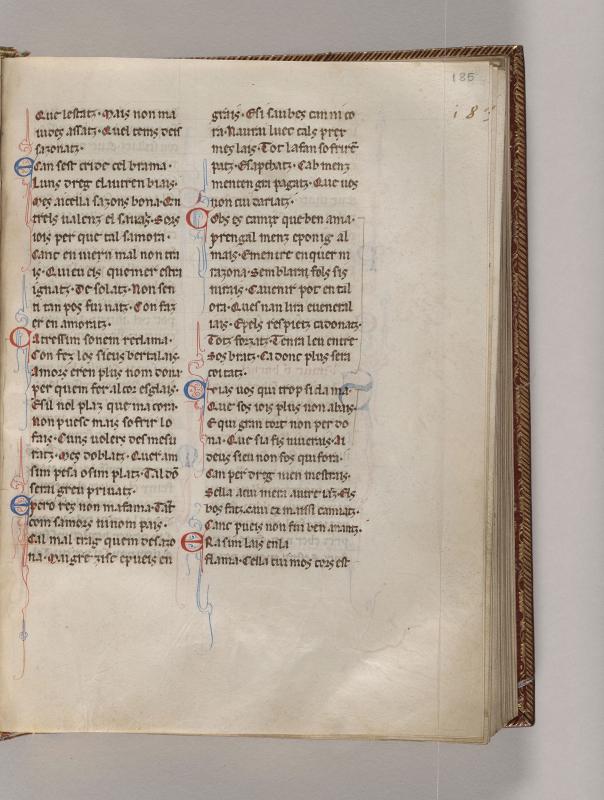 185
185
Que lestatz. Mais non ma
iudes assatz. Quel tems deis
sazonatz.
Can sest cride cel brama.
Luns dreg el autren biais.
Mes aicella sazons bona. En
treis
iois per que tal samora.
Canc en iuern mal non tra
is. Quieu eis quem er estra
ignatz. De solatz. Non sen
n tan pos fui natz. Con faz
er en amoratz.
Catressim sonem reclama.
Con fez los sieus bertalais.
Amors eren plus nom dona
per quem fer al cor esglais.
Esil nol plaz que ma cora.
non puesc mais sofrir lo
fais. Cuns volers desmesu
ratz. Mes doblatz. Quer am
sim pesa o sim platz. Tal do
serai greu priuatz.
Epero res non mafama. Tan
com samors
Cal mal trag quem desazo
na. Maigrezisc e pueis en
grais. Esi saubes canni co
ra. Naurai luec tals prer
mes lais. Tot lafan sofrire
patz. Esapchatz. Cab menz
menten gra pagatz. Que vos
non cuidariatz.
Cobs es camz que ben ama.
prengal menz e ponig al
mais. Ementre enquer ni
razona. Semblarai fols sis
nirais. Cauenir pot en tal
ora. Ques nan lira eueneral
iais. Epels respietz cadonatz.
Totz forzatz. Tenra leu entre
sos bratz. Ca donc plus sera
coitatz.
trias vos qui trop si clama.
Que sos iois plus non abais.
E qui gran tort non perdo
na. Que sia fis
deus sieu non fos qui fora.
Can per dreg
Sella
bos fatz
Canc pueis non fui ben
Era sim lais en la
flama. Cella cui mos cors est